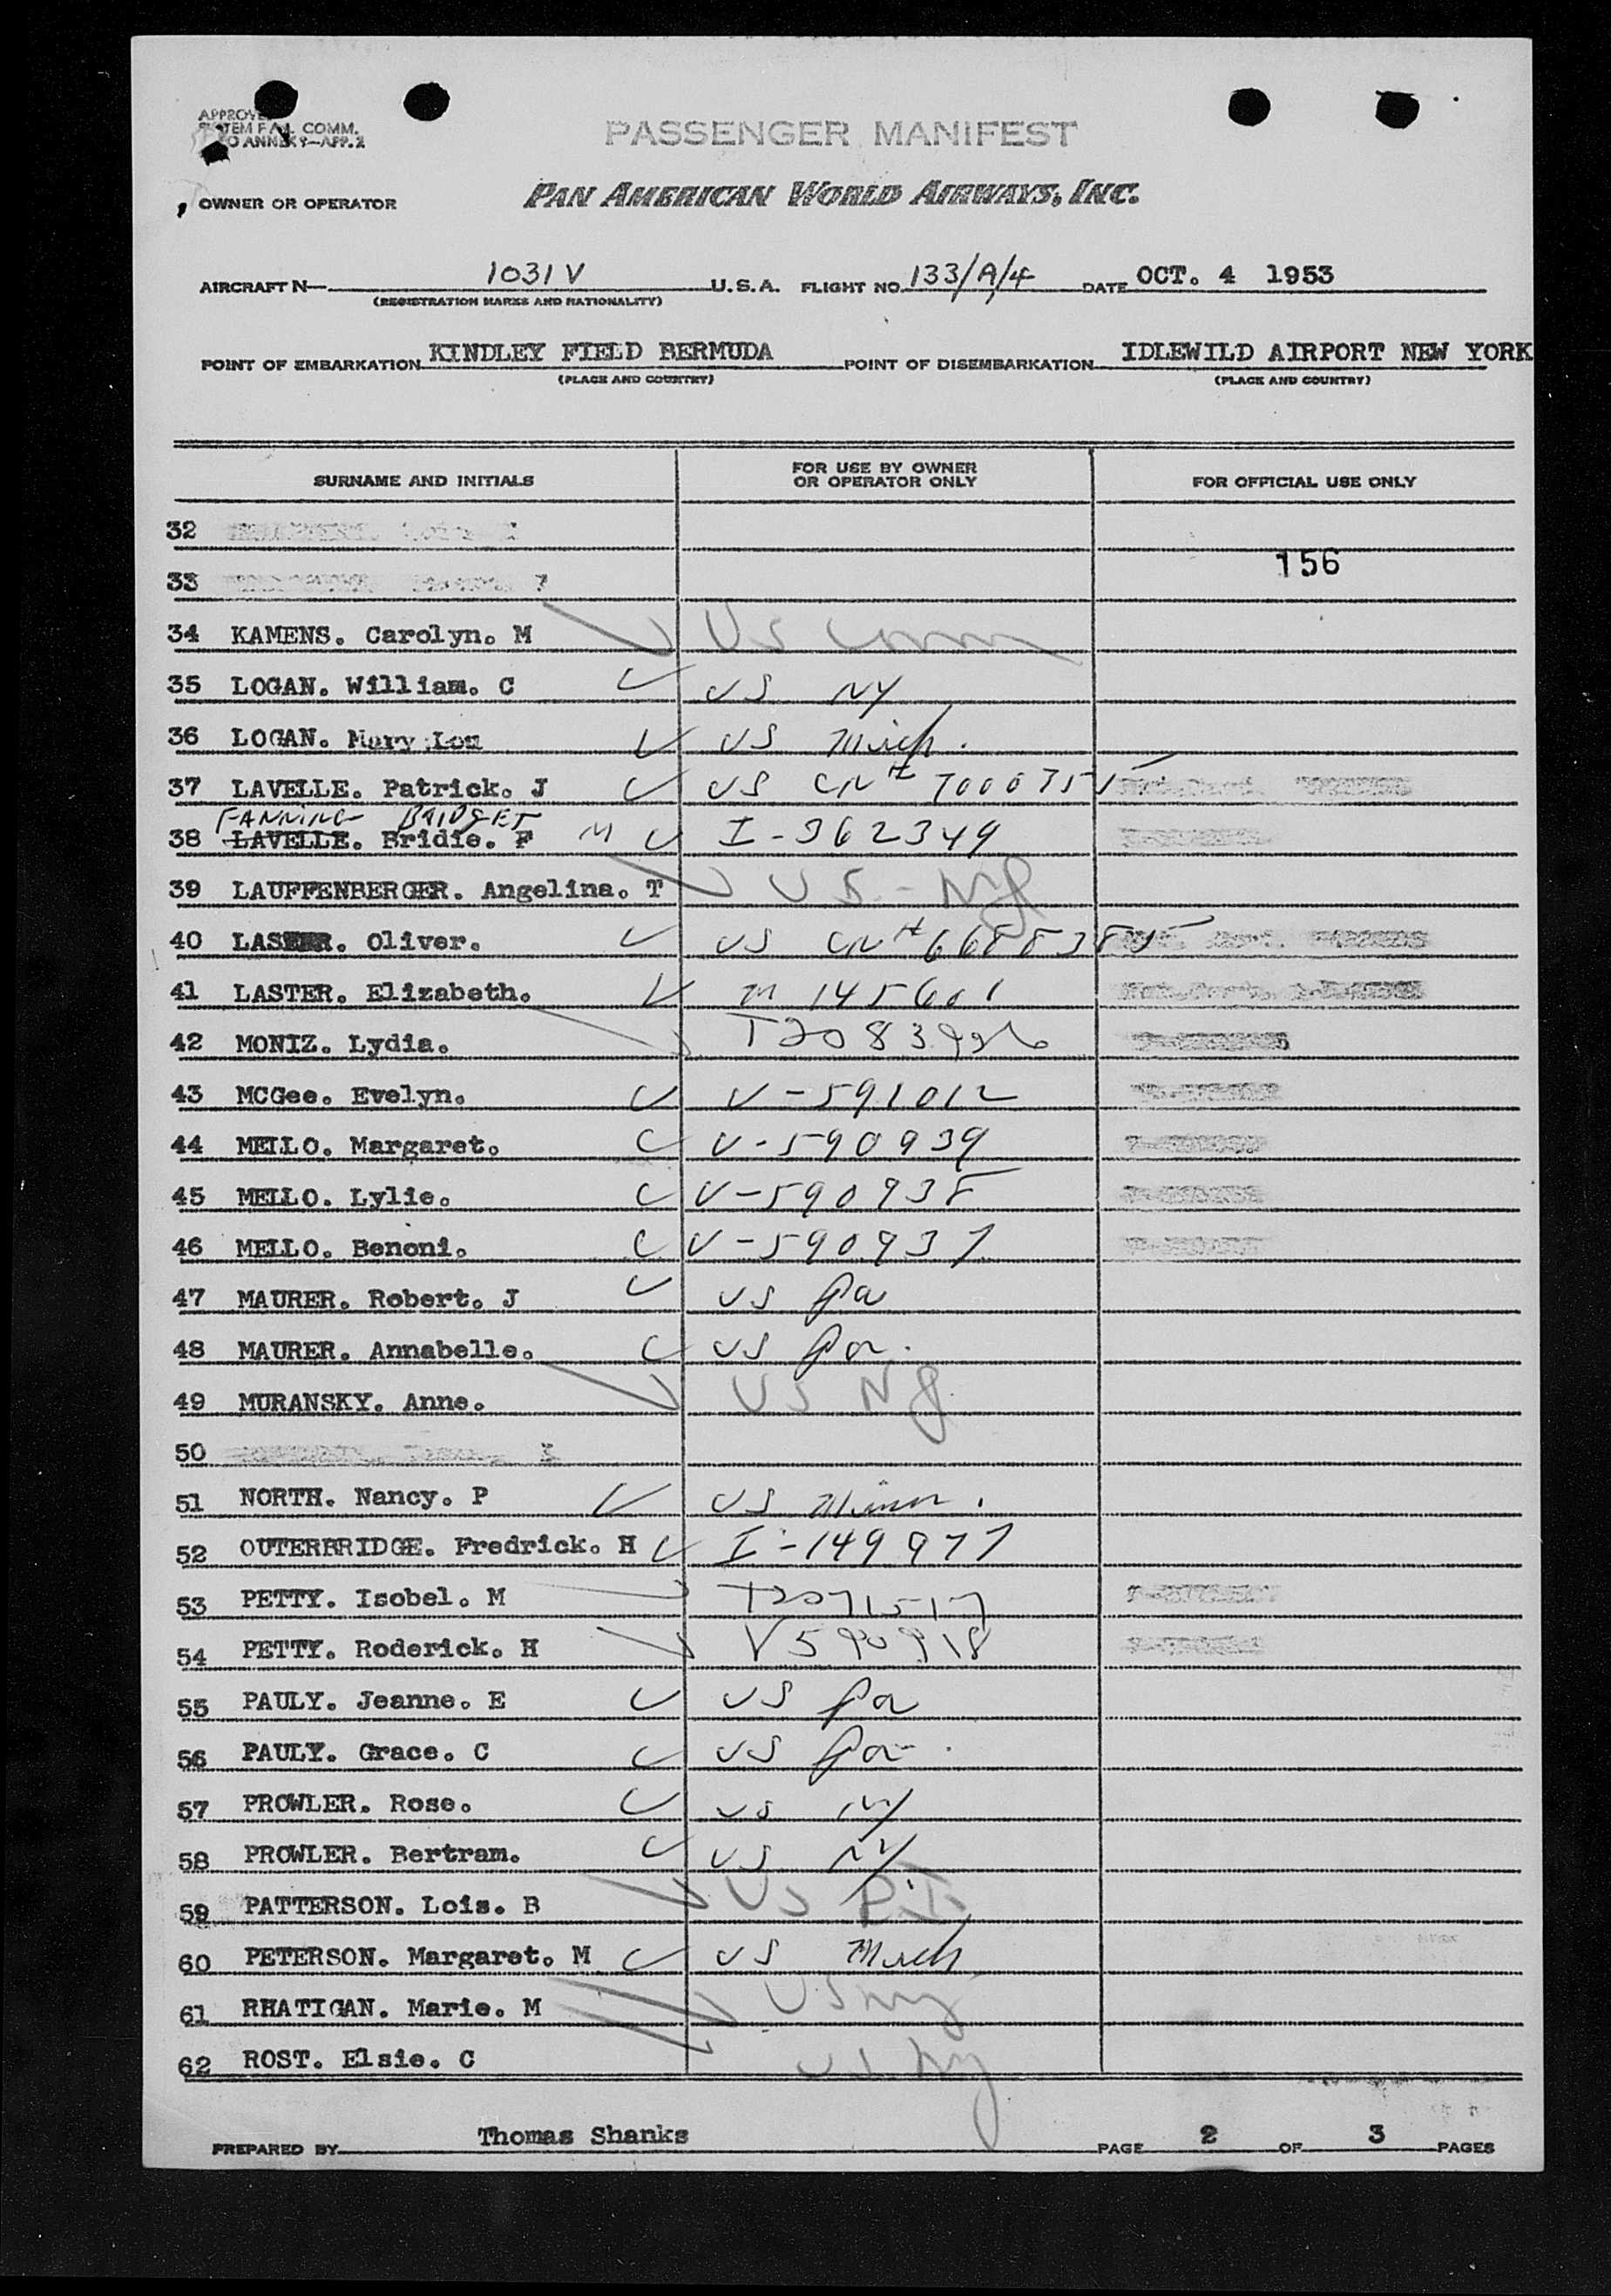 PASSENGER MANIFEST
OWNER OR OPERATOR PAN AMERICAN WORLD AIRWAYS, INC.
AIRCRAFT N— 1031V U.S.A. FLIGHT NO. 133/A/4 DATE OCT. 4 1953
(REGISTRATION MARKS AND NATIONALITY)
POINT OF EMBARKATION KINDLEY FIELD BERMUDA POINT OF DISEMBARKATION IDLEWILD AIRPORT NEW YORK
(PLACE AND COUNTRY) (PLACE AND COUNTRY)
SURNAME AND INITIALS FOR USE BY OWNER OR OPERATOR ONLY FOR OFFICIAL USE ONLY
32
156
33
34 KAMENS. Carolyn. M US Conn
35 LOGAN. William. C US NY
36 LOGAN. Mary Lou US Mich.
37 LAVELLE. Patrick. J US CN#
FANNING BRIDGET
38 LAVELLE. Bridie. F M I-362349
39 LAUFFENBERGER. Angelina. T US - NJ
40 Oliver. US CN#
41 LASTER. Elizabeth. M 145601
42 MONIZ. Lydia.
43 MCGee. Evelyn. V-591012
44 MELLO. Margaret. V-590939
45 MELLO. Lylie. V-590938
46 MELLO. Benoni. V-590937
47 MAURER. Robert. J US Pa
48 MAURER. Annabelle. US Pa.
49 MURANSKY. Anne. US NJ
50
51 NORTH. Nancy. P US Minn.
52 OUTERBRIDGE. Fredrick. H I-149977
53 PETTY. Isobel. M T2071517
54 PETTY. Roderick. H V590918
55 PAULY. Jeanne. E US Pa
56 PAULY. Grace. C US Pa.
57 PROWLER. Rose. US NY
58 PROWLER. Bertram. US NY
59 PATTERSON. Lois. B US
60 PETERSON. Margaret. M US Mich
61 RHATIGAN. Marie. M US NY
62 ROST. Elsie. C US NY
PREPARED BY Thomas Shanks PAGE 2 OF 3 PAGES